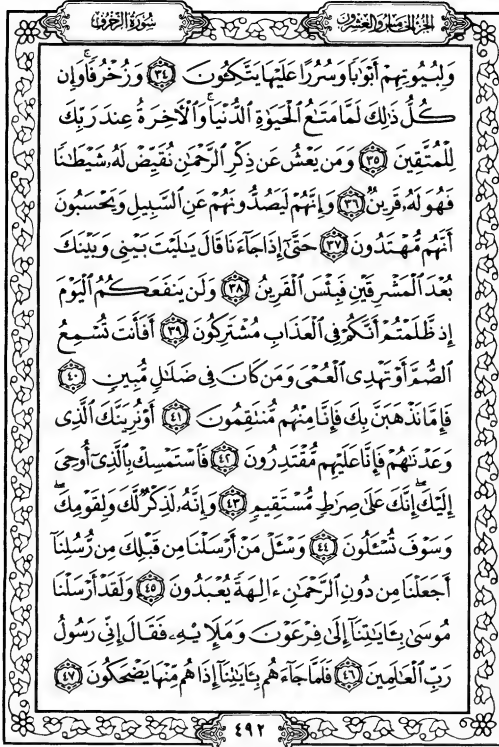 سُورَةُ الزُّخْرُفِ
الجُزْءُ الخَامِسُ وَالعِشْرُونَ
وَلِبُيُوتِهِمْ أَبْوَٰبًا وَسُرُرًا عَلَيْهَا يَتَّكِـُٔونَ ٣٤ وَزُخْرُفًا ۚ وَإِن
كُلُّ ذَٰلِكَ لَمَّا مَتَٰعُ ٱلْحَيَوٰةِ ٱلدُّنْيَا ۚ وَٱلْـَٔاخِرَةُ عِندَ رَبِّكَ
لِلْمُتَّقِينَ ٣٥ وَمَن يَعْشُ عَن ذِكْرِ ٱلرَّحْمَٰنِ نُقَيِّضْ لَهُۥ شَيْطَٰنًا
فَهُوَ لَهُۥ قَرِينٌ ٣٦ وَإِنَّهُمْ لَيَصُدُّونَهُمْ عَنِ ٱلسَّبِيلِ وَيَحْسَبُونَ
أَنَّهُم مُّهْتَدُونَ ٣٧ حَتَّىٰٓ إِذَا جَآءَنَا قَالَ يَٰلَيْتَ بَيْنِي وَبَيْنَكَ
بُعْدَ ٱلْمَشْرِقَيْنِ فَبِئْسَ ٱلْقَرِينُ ٣٨ وَلَن يَنفَعَكُمُ ٱلْيَوْمَ
إِذ ظَّلَمْتُمْ أَنَّكُمْ فِي ٱلْعَذَابِ مُشْتَرِكُونَ ٣٩ أَفَأَنتَ تُسْمِعُ
ٱلصُّمَّ أَوْ تَهْدِي ٱلْعُمْيَ وَمَن كَانَ فِي ضَلَٰلٍ مُّبِينٍ ٤٠
فَإِمَّا نَذْهَبَنَّ بِكَ فَإِنَّا مِنْهُم مُّنتَقِمُونَ ٤١ أَوْ نُرِيَنَّكَ ٱلَّذِي
وَعَدْنَٰهُمْ فَإِنَّا عَلَيْهِم مُّقْتَدِرُونَ ٤٢ فَٱسْتَمْسِكْ بِٱلَّذِيٓ أُوحِيَ
إِلَيْكَ ۖ إِنَّكَ عَلَىٰ صِرَٰطٍ مُّسْتَقِيمٍ ٤٣ وَإِنَّهُۥ لَذِكْرٌ لَّكَ وَلِقَوْمِكَ ۖ
وَسَوْفَ تُسْـَٔلُونَ ٤٤ وَسْـَٔلْ مَنْ أَرْسَلْنَا مِن قَبْلِكَ مِن رُّسُلِنَآ
أَجَعَلْنَا مِن دُونِ ٱلرَّحْمَٰنِ ءَالِهَةً يُعْبَدُونَ ٤٥ وَلَقَدْ أَرْسَلْنَا
مُوسَىٰ بِـَٔايَٰتِنَآ إِلَىٰ فِرْعَوْنَ وَمَلَإِيْهِۦ فَقَالَ إِنِّي رَسُولُ
رَبِّ ٱلْعَٰلَمِينَ ٤٦ فَلَمَّا جَآءَهُم بِـَٔايَٰتِنَآ إِذَا هُم مِّنْهَا يَضْحَكُونَ ٤٧
٤٩٢